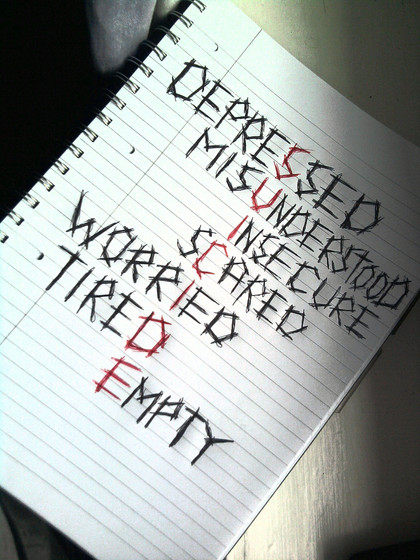 DEPRESSED
MISUNDERSTOOD
INSECURE
SCARED
WORRIED
TIRED
EMPTY